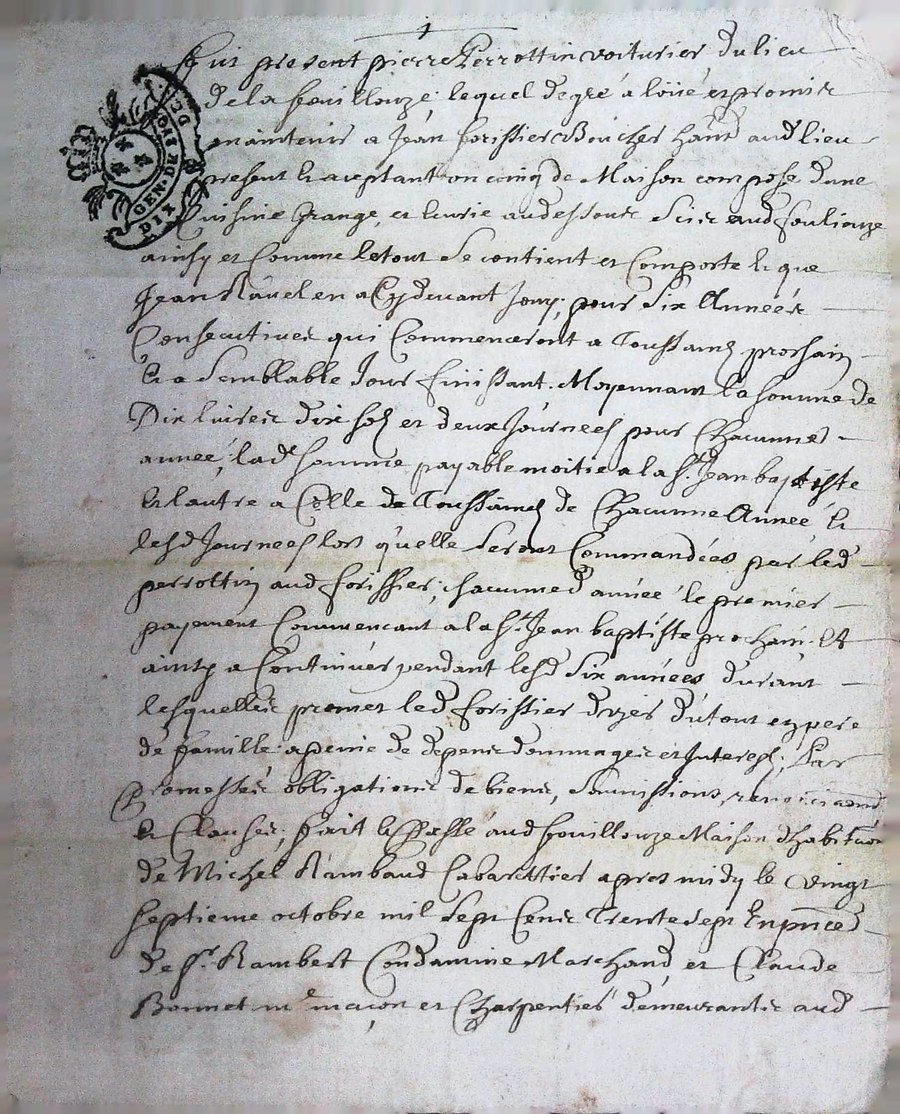 GEN. DE RIOM
DIX DEN
1
Fut present pierre Perrottin voiturier du lieu
de la fouillouze, lequel de gré a loüé et promis
maintenir a Jean forissier Boucher hãnt aud lieu
present & acceptant un coing de Maison composé d'une
Cuisine Grange, et écurie au dessous Scize aud fouliouze
ainsy et Comme le tout Se contient et Comporte & que
Jean Ravel en a Cy devant Jouy, pour Six Années
Consecutives qui Commenceront a Toussaints prochain
& a Semblable Jour finissant. Moyennant la somme de
Dix livres dix sols et deux Journees pour Chacunne
année, lad somme payable moitie a la St Jean baptiste
& lautre a Celle de Toussaints de Chacunne Année &
lesd Journees lors qu'elle Seront Commandées par led
perrottin aud forissier, chacunne d année le premier
payement Commencant a la St Jean baptiste prochain, Et
ainsy a Continuer pendant lesd Six années durant
lesquelles promet led forissier d'user du tout en pere
de famille a peine de depens dommages et Interests, Par
Promesses obligations de biens, Soumissions, renonciaõns
& Clauses, fait & Passé aud fouillouze Maison d'habitãon
de Michel Rambaud Cabarettier apres midy le vingt
septieme octobre mil Sept Cents Trente Sept En pñce
de Sr Rambert Condamine Marchand et Claude
Bonnet me maçon et Charpentier demeurants aud